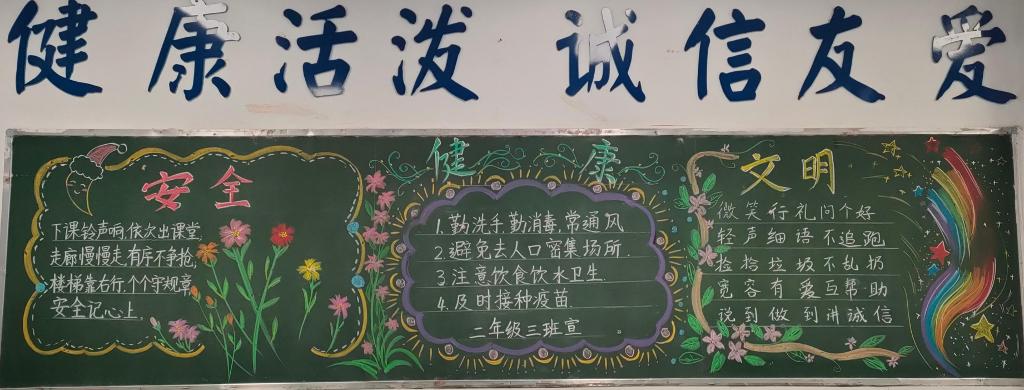 健康活泼 诚信友爱
安全
下课铃声响依次出课堂
走廊慢慢走有序不争抢
楼梯靠右行个个守规章
安全记心上
健康
1.勤洗手勤消毒,常通风
2.避免去人口密集场所.
3.注意饮食饮水卫生.
4.及时接种疫苗
二年级三班宣
文明
微笑行礼问个好
轻声细语不追跑
捡拾垃圾不乱扔
宽容有爱互帮助
说到做到讲诚信